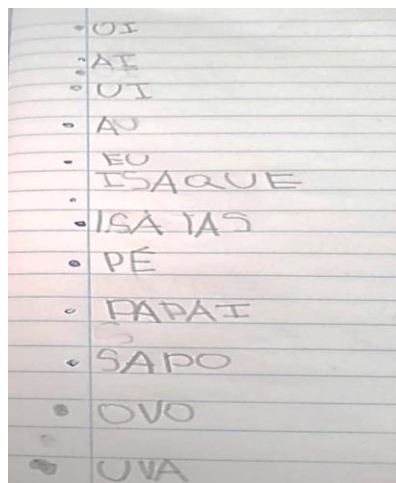 OI
AI
UI
AU
EU
ISAQUE
ISAIAS
PÉ
PAPAI
S
SAPO
OVO
UVA